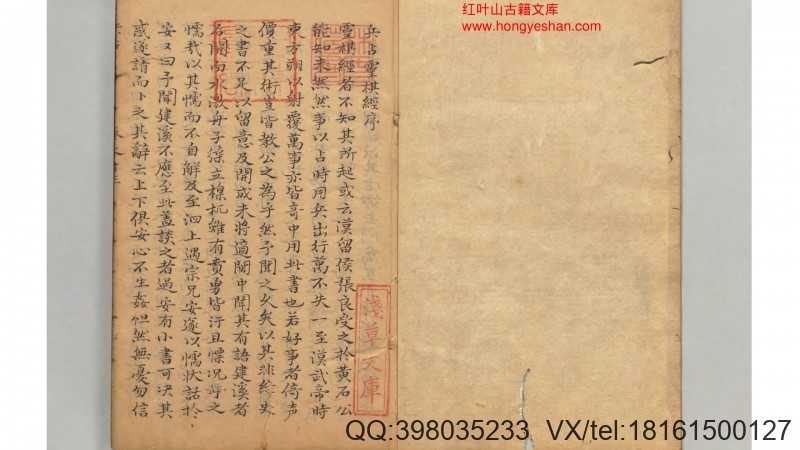 红叶山古籍文库
www.hongyeshan.com
兵占靈棋經序
靈棋經者不知其所起或云漢留侯張良受之於黃石公
能知未然然事以占時用兵出行萬不失一至漢武帝時
東方朔以射覆萬事亦皆奇中用此書也若好事者倚聲
價重其術豈皆教公之為乎然予聞之久矣以其非經史
之書不足以留意及開成末將適閩中聞其有語建溪者
名聞而水激舟子傺立檝机雖有賁勇皆汗且慄況
懦哉以其懦而不自解及至泗上遇宗兄安遂以懦狀話於
安又曰予聞建溪不應至此蓋談之者過安有小書可決其
或遂請而卜之其辭云上下俱安心不生姦怛然無憂勿信
淺草文庫
QQ:398035233 VX/tel:18161500127